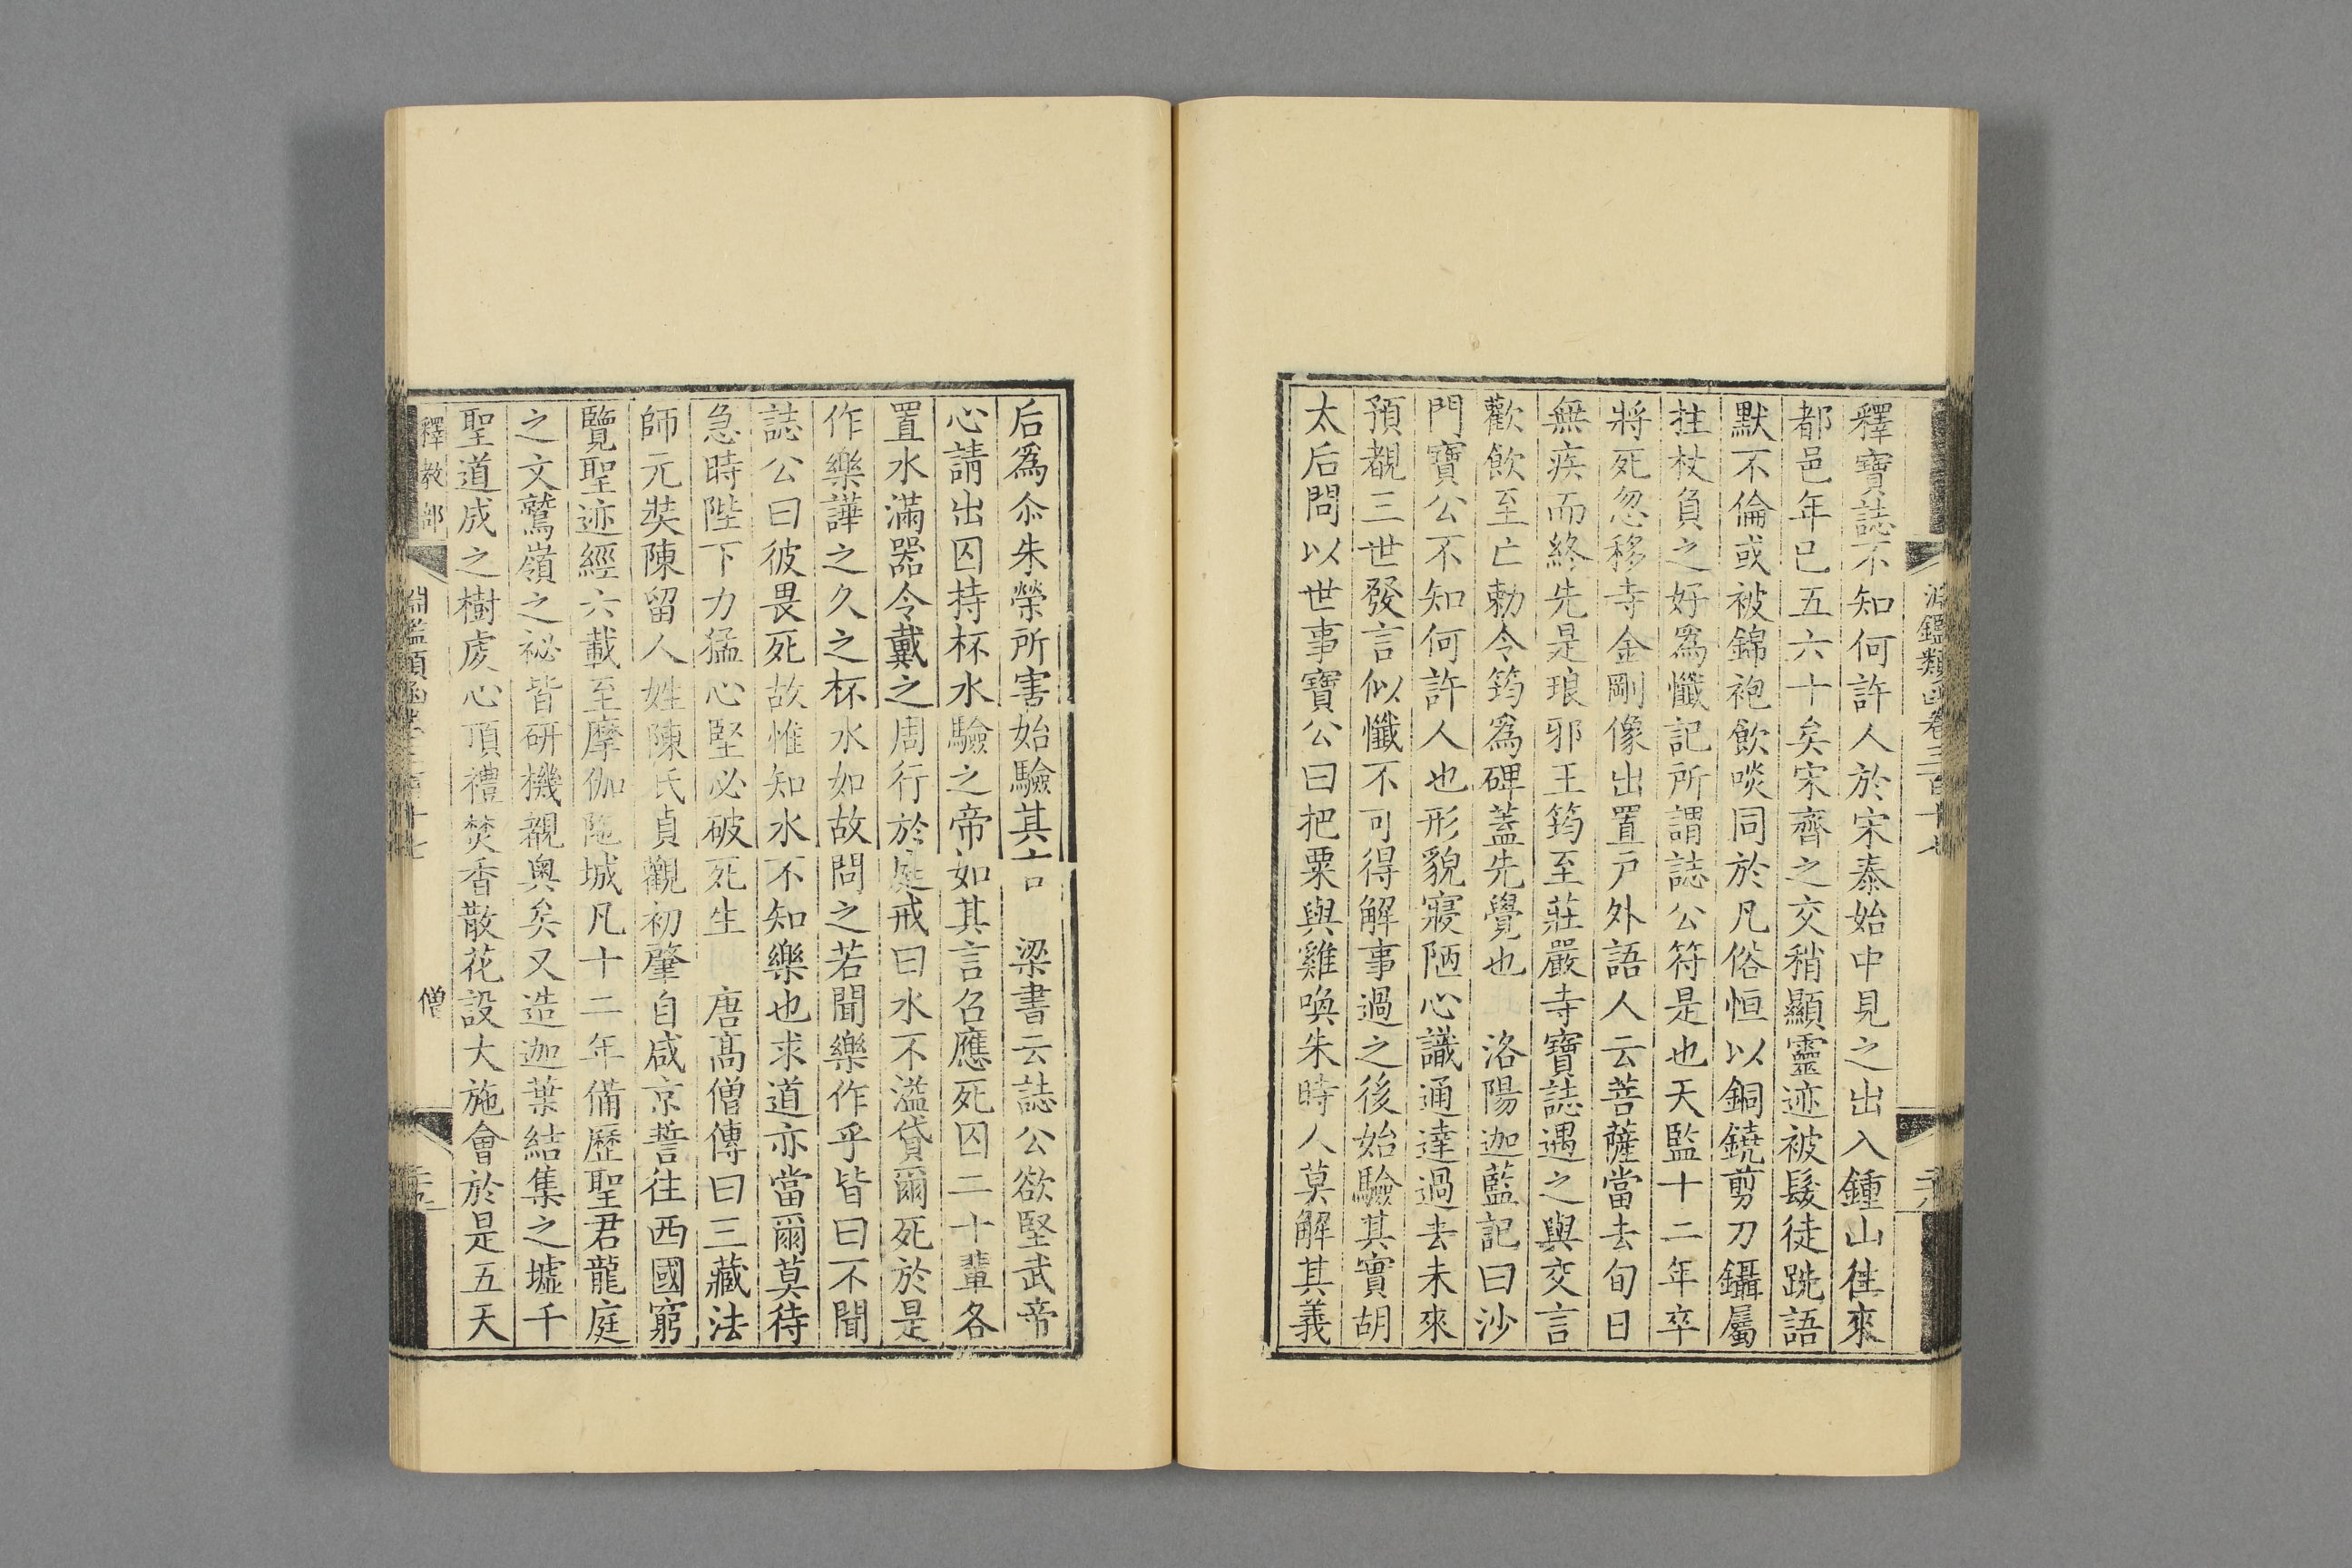 淵鑑類函卷三百十七
釋寶誌不知何許人於宋泰始中見之出入鍾山徃來
都邑年已五六十矣宋齊之交稍顯靈迹被髮徒跣語
默不倫或被錦袍飲啖同於凡俗恒以銅鏡剪刀鑷屬
拄杖負之好爲懺記所謂誌公符是也天監十二年卒
將死忽移寺金剛像出置戶外語人云菩薩當去旬日
無疾而終先是琅邪王筠至莊嚴寺寶誌遇之與交言
歡飲至亡勅令筠爲碑蓋先覺也 洛陽迦藍記曰沙
門寶公不知何許人也形貌寢陋心識通達過去未來
預覩三世發言似懺不可得解事過之後始驗其實胡
太后問以世事寶公曰把粟與雞喚朱時人莫解其義
后爲尒朱榮所害始驗其言 梁書云誌公欲堅武帝
心請出囚持杯水驗之帝如其言召應死囚二十輩各
置水滿器令戴之周行於庭戒曰水不溢貸爾死於是
作樂譁之久之杯水如故問之若聞樂作乎皆曰不聞
誌公曰彼畏死故惟知水不知樂也求道亦當爾莫待
急時陛下力猛心堅必破死生 唐高僧傳曰三藏法
師元奘陳留人姓陳氏貞觀初肇自咸京誓往西國窮
覽聖迹經六載至摩伽陁城凡十二年備歷聖君龍庭
之文鷲嶺之祕皆研機覩奧矣又造迦葉結集之墟千
聖道成之樹虔心頂禮焚香散花設大施會於是五天
釋教部
僧